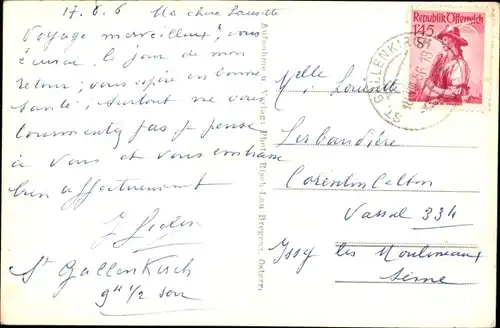 17.6.6 Ma chère Lousette
Voyage merveilleux, vous
écrirai le jour de mon
retour, vous espère en bonne
santé, surtout ne vous
tourmentez pas je pense
à vous et vous embrasse
bien affectueusement
St Gallenkirch
9H 1/2 soir
Aufnahme u. Verlag: Photo Risch-Lau Bregenz, Österr.
Republik Österreich
1'45
S
ST. GALLENKIRCH
Melle Lousette
Lesbandière
Corentin Celton
Vassal 334
Issy les Moulineaux
Seine